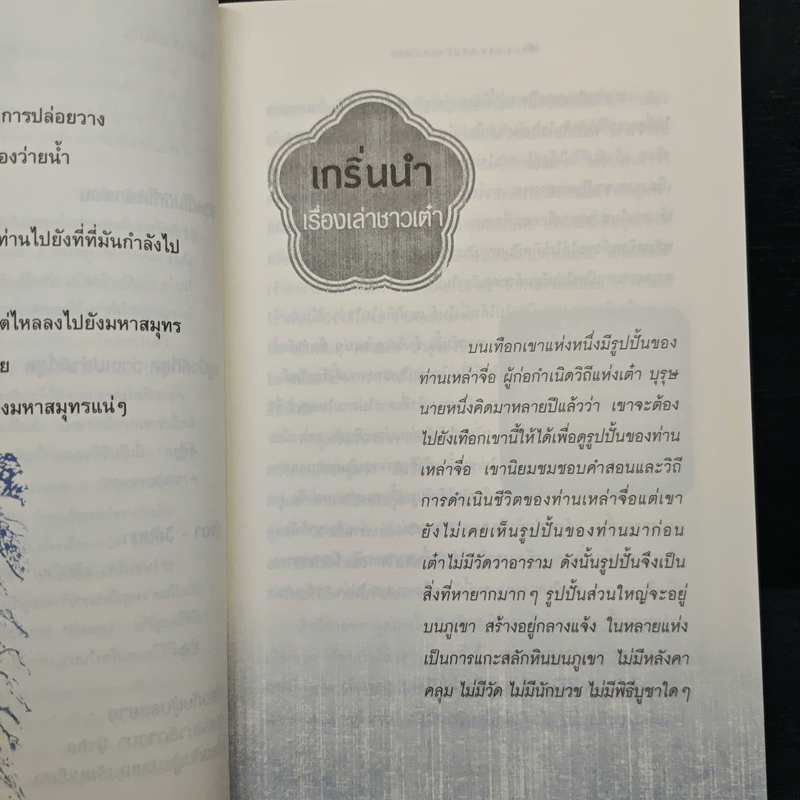 การปล่อยวาง
องว่ายน้ำ
ท่านไปยังที่ที่มันกำลังไป
ต่ไหลลงไปยังมหาสมุทร
ย
งมหาสมุทรแน่ๆ
เกริ่นนำ
เรื่องเล่าชาวเต๋า
บนเทือกเขาแห่งหนึ่งมีรูปปั้นของ
ท่านเหล่าจื่อ ผู้ก่อกำเนิดวิถีแห่งเต๋า บุรุษ
นายหนึ่งคิดมาหลายปีแล้วว่า เขาจะต้อง
ไปยังเทือกเขานี้ให้ได้เพื่อดูรูปปั้นของท่าน
เหล่าจื่อ เขานิยมชมชอบคำสอนและวิถี
การดำเนินชีวิตของท่านเหล่าจื่อแต่เขา
ยังไม่เคยเห็นรูปปั้นของท่านมาก่อน
เต๋าไม่มีวัดวาอาราม ดังนั้นรูปปั้นจึงเป็น
สิ่งที่หายากมากๆ รูปปั้นส่วนใหญ่จะอยู่
บนภูเขา สร้างอยู่กลางแจ้ง ในหลายแห่ง
เป็นการแกะสลักหินบนภูเขา ไม่มีหลังคา
คลุม ไม่มีวัด ไม่มีนักบวช ไม่มีพิธีบูชาใดๆ